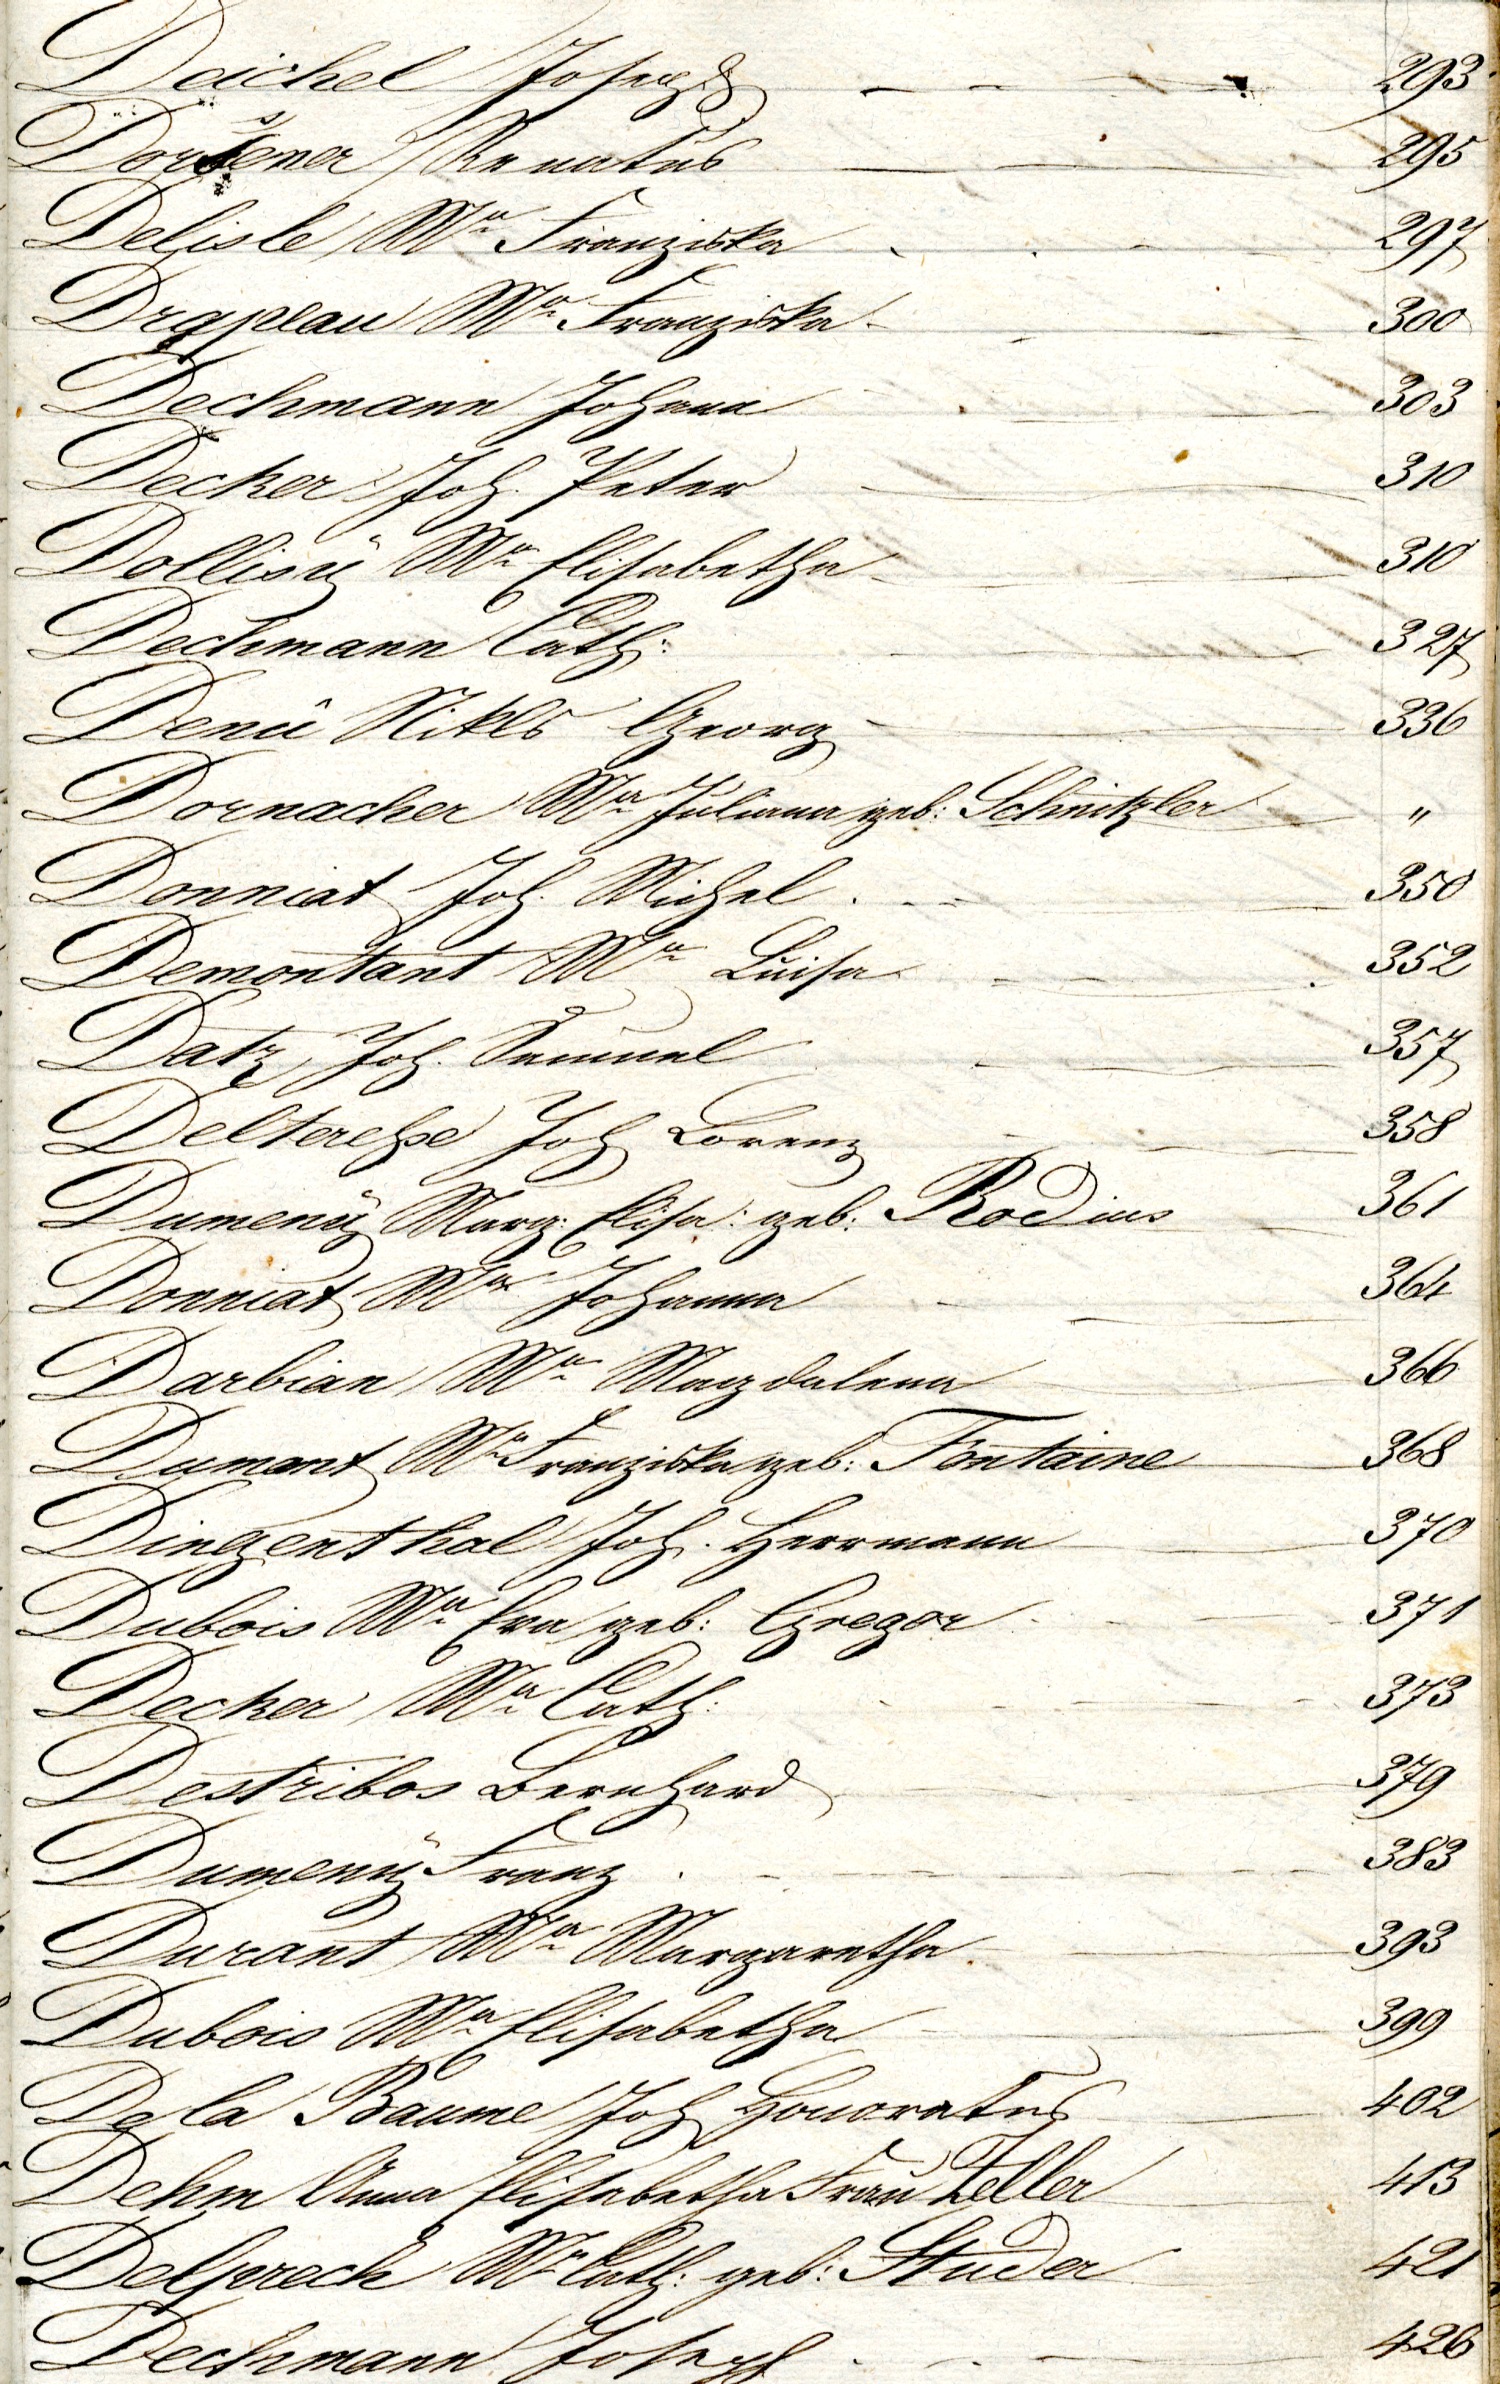 Deichel Joseph 293
Dorsener Renatus 295
Delisle Ma Franziska 297
Drapeau Ma Franziska 300
Dechmann Johann 303
Decker Joh. Peter 310
Dollisÿ Ma Elisabetha 310
Dechmann Cath: 327
Denû Nikls Georg 336
Dornacher Ma Juliana geb: Schnitzler "
Donniat Joh. Michel 350
Demontant Ma Luisa 352
Datz Joh. Samuel 357
Delterehse Joh Lorenz 358
Dumenÿ Marg: Elisa: geb: Rodius 361
Donniat Ma Johanna 364
Darbian Ma Magdalena 366
Dumont Ma Franziska geb: Fontaine 368
Dingenthal Joh. Herrmann 370
Dubois Ma Eva geb: Gregor 371
Decker Ma Cath: 373
Destribos Bernhard 379
Dumenÿ Franz 383
Durant Ma Margaretha 393
Dubois Ma Elisabetha 399
De la Baume Joh Honoratus 402
Dehm Anna Elisabetha Frau Zeller 413
Delprech Ma Cath: geb: Studer 421
Dechmann Joseph 426